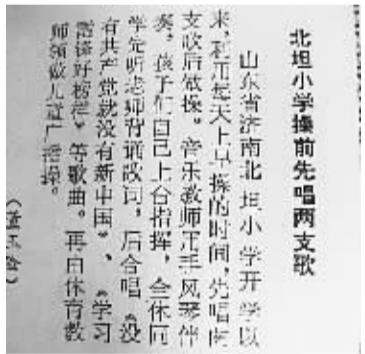 北坦小学操前先唱两支歌
山东省济南北坦小学开学以
来，利用每天上早操的时间，先唱两
支歌后做操。音乐教师用手风琴伴
奏，孩子们自己上台指挥，全体同
学先听老师背诵歌词，后合唱《没
有共产党就没有新中国》、《学习
雷锋好榜样》等歌曲。再由体育教
师领做儿童广播操。